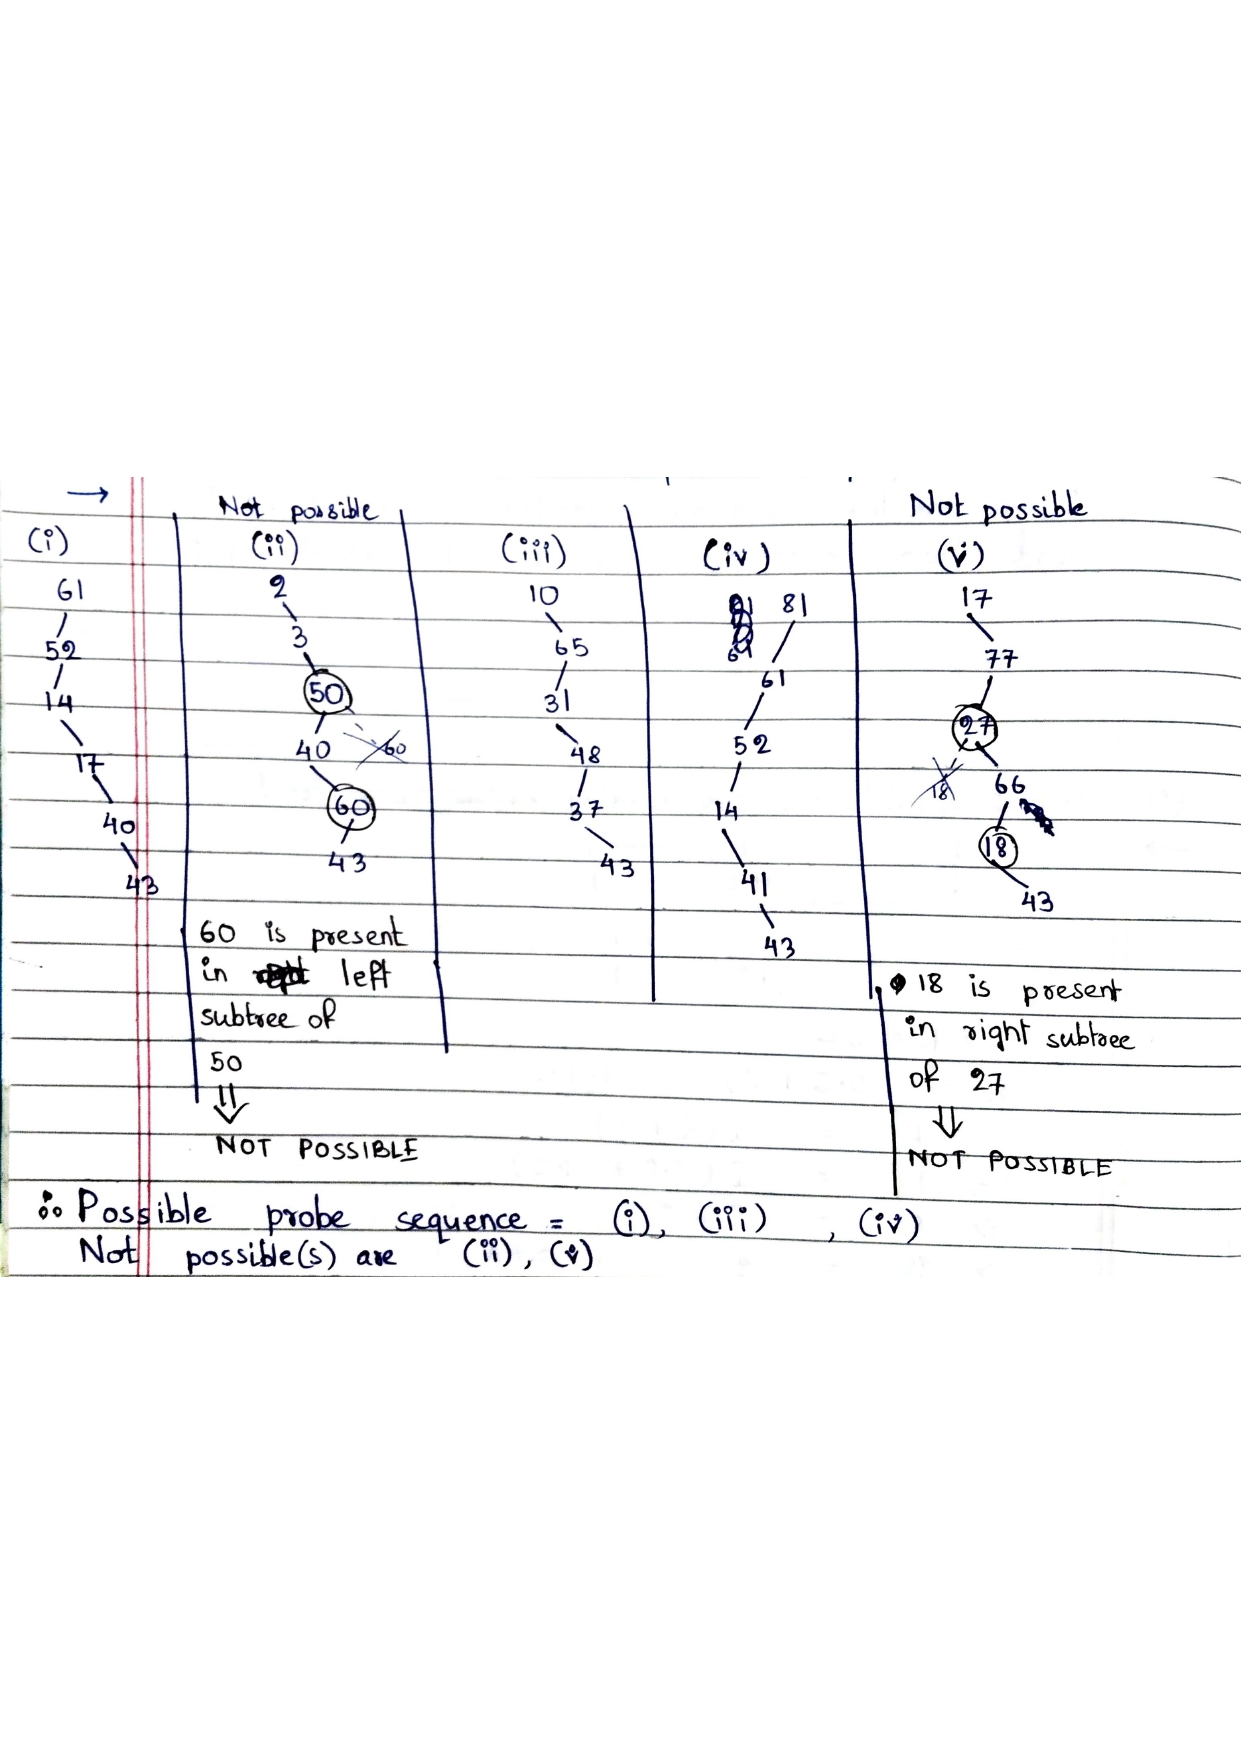 →
Not possible
Not possible
(i)
(ii)
(iii)
(iv)
(v)
61
52
14
17
40
43
2
3
50
40 60
60
43
60 is present
in left
subtree of
50
⇓
NOT POSSIBLE
10
65
31
48
37
43
81
61
52
14
41
43
17
77
27
18 66
18
43
18 is present
in right subtree
of 27
⇓
NOT POSSIBLE
∴ Possible probe sequence = (i), (iii) , (iv)
Not possible(s) are (ii), (v)